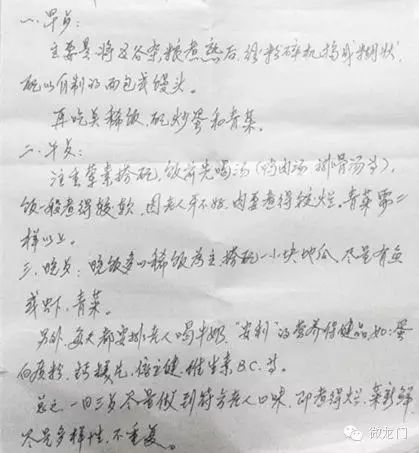 一.早点:
主要是将五谷杂粮煮熟后,经粉碎机捣成糊状,
配以自制的面包或馒头。
再吃点稀饭,配炒蛋和青菜。
二.午点:
注重荤素搭配,饭前先喝汤(鸡肉汤 排骨汤等),
饭一般煮得较软,因老人牙不好,肉要煮得较烂,青菜要二
样以上。
三.晚点:晚饭多以稀饭为主,搭配一小块地瓜,尽量有鱼
或虾,青菜。
另外,每天都安排老人喝牛奶,"安利"的营养保健品如:蛋
白质粉,钙镁片,倍立健,维生素BC.等。
总之,一日三点尽量做到符合老人口味,即煮得烂,菜新鲜
尽是多样性,不重复。
微龙门